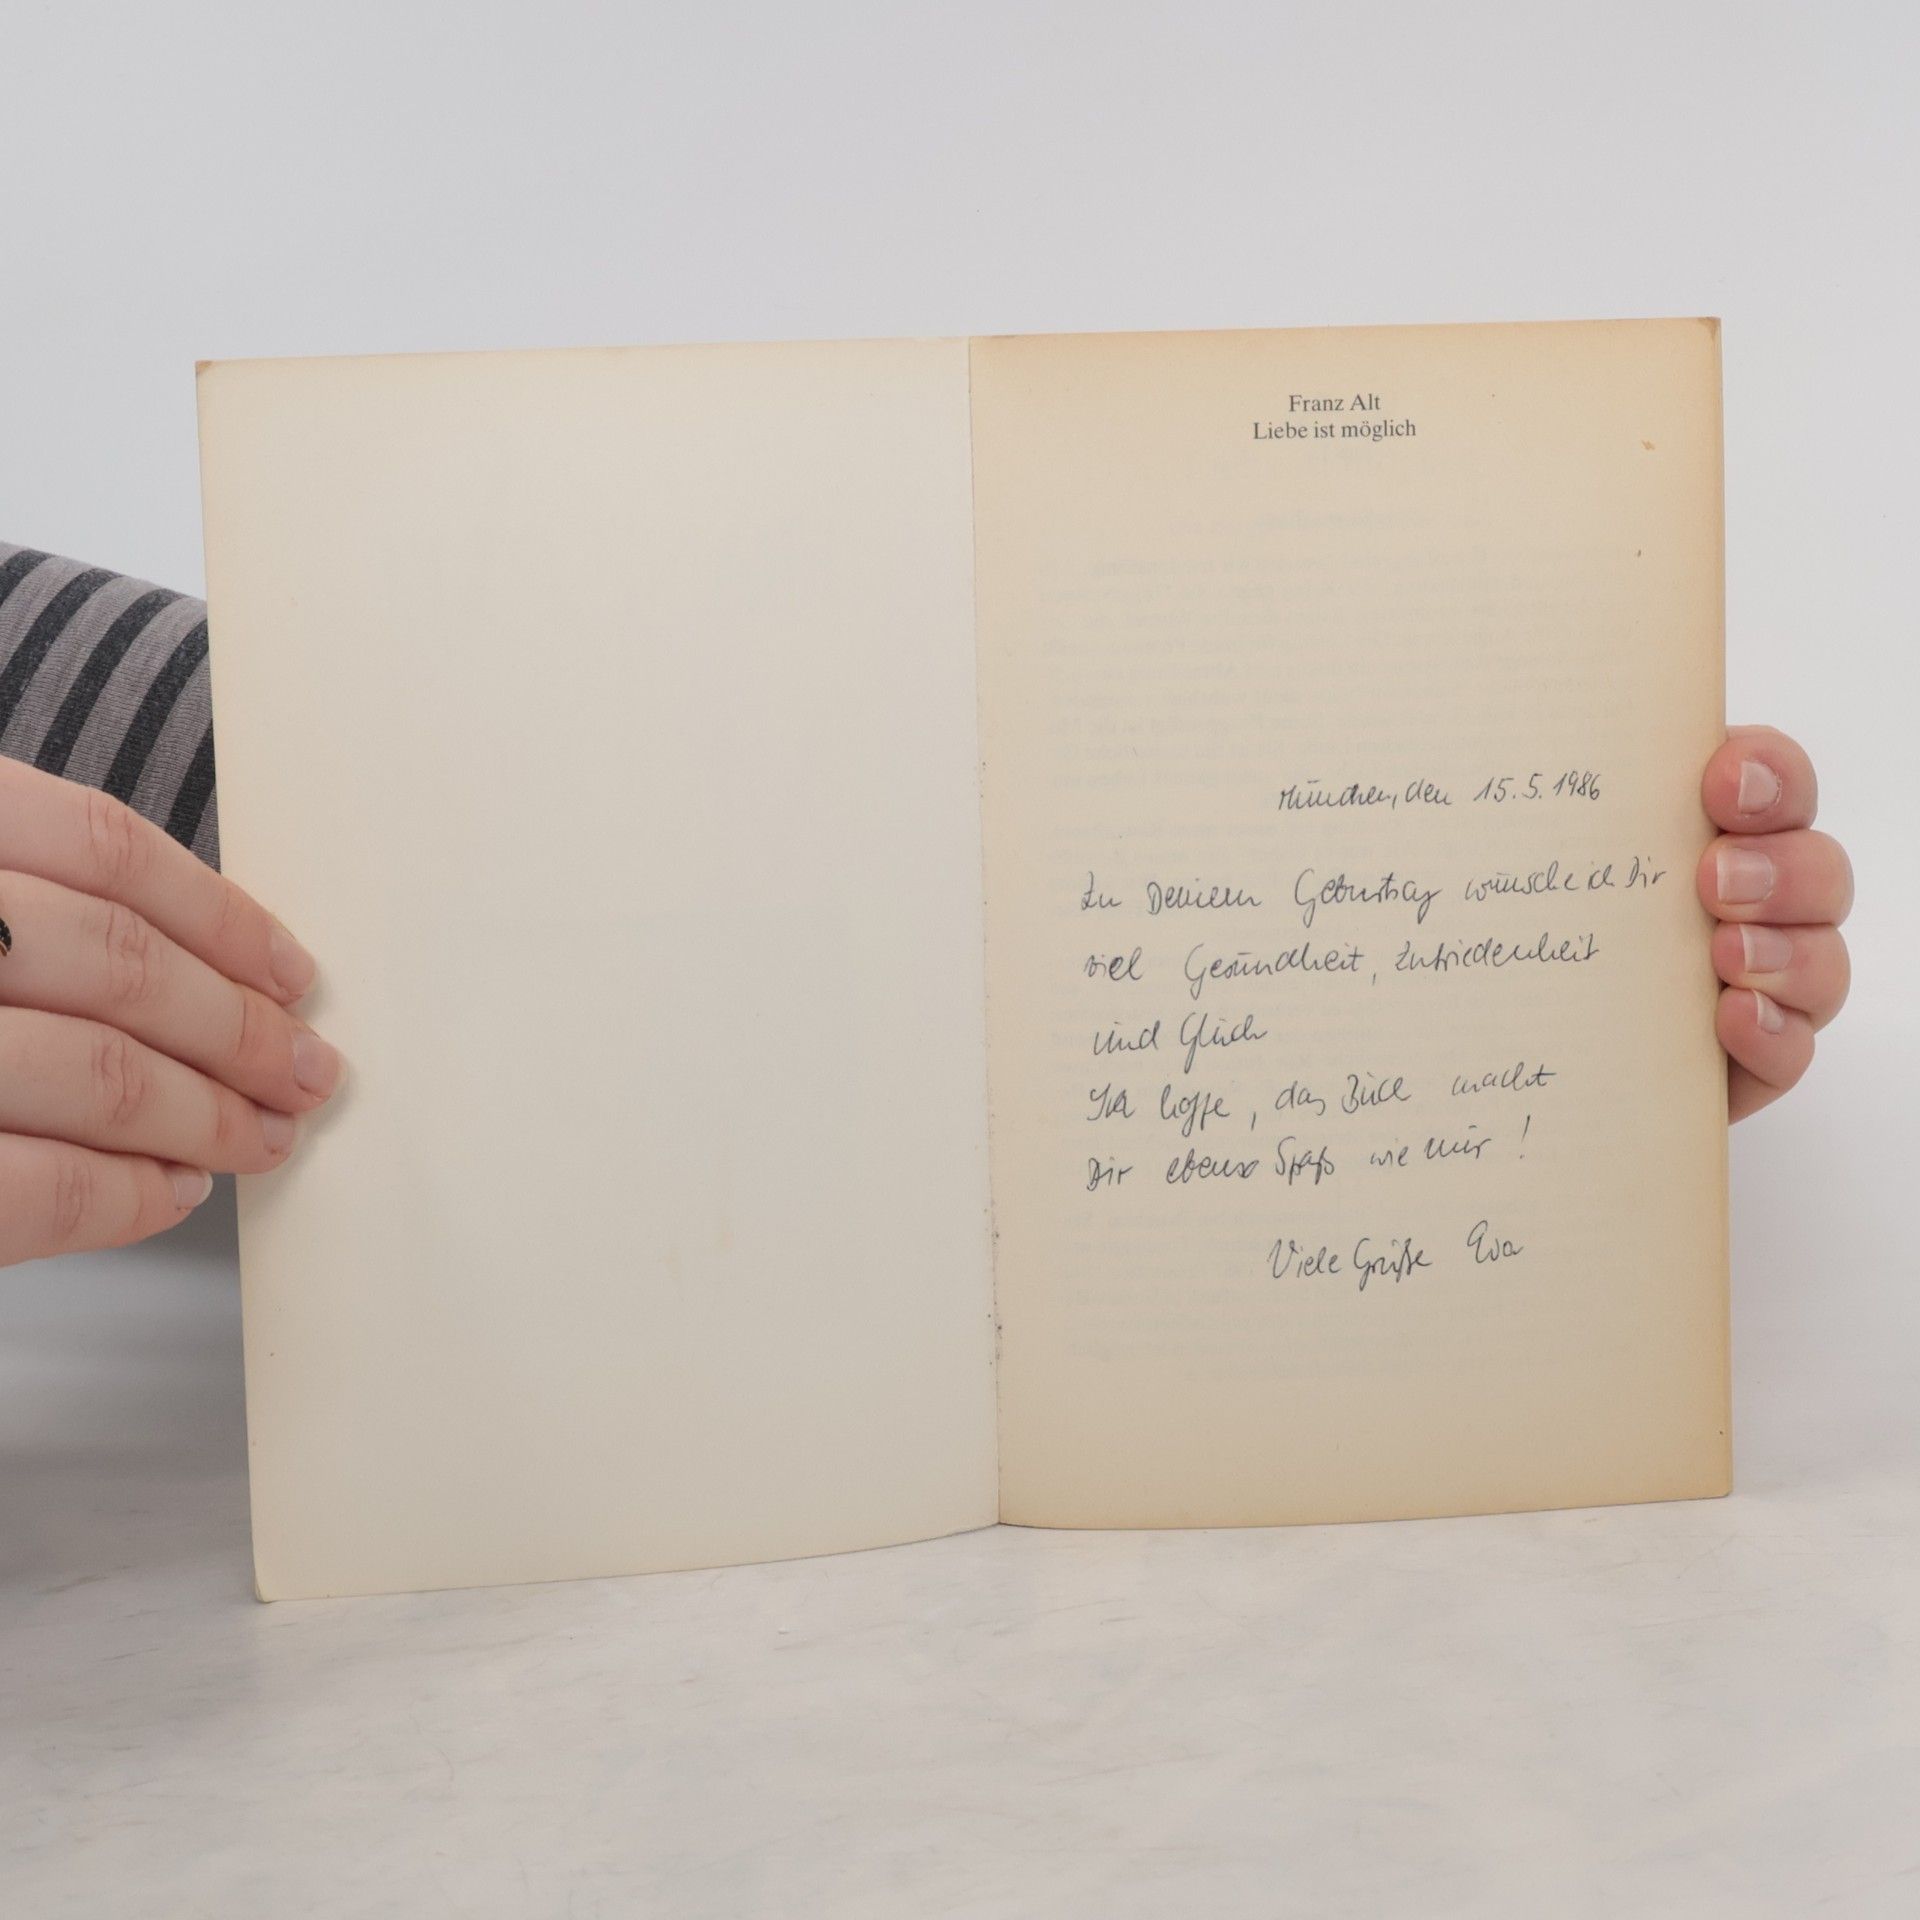 Franz Alt
Liebe ist möglich
München, den 15.5.1986
Zu Deinem Geburtstag wünsche ich Dir
viel Gesundheit, Zufriedenheit
und Glück
Ich hoffe, das Buch macht
Dir ebenso Spaß wie mir!
Viele Grüße Eva